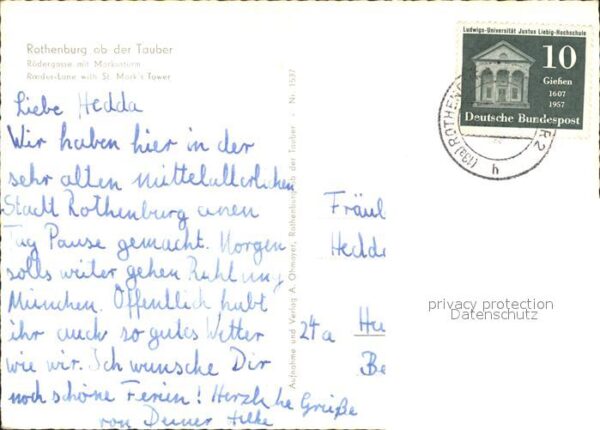 Rothenburg ob der Tauber
Rödergasse mit Markusturm
Roeder-Lane with St. Mark's Tower
Liebe Hedda
Wir haben hier in der
sehr alten mittelalterlichen
Stadt Rothenburg einen
Tag Pause gemacht. Morgen
solls weiter gehen Richtung
München. Öffentlich habt
ihr auch so gutes Wetter
wie wir. Ich wünsche Dir
noch schöne Ferien! Herzliche Grüße
von Deiner Hilke
Aufnahme und Verlag A. Ohmayer, Rothenburg ob der Tauber - Nr. 1537
Ludwigs-Universität Justus Liebig-Hochschule
10
Gießen
1607
1957
Deutsche Bundespost
(13a) ROTHENB
R 2
h
Fräul
Hedda
24a
He
Be
privacy protection
Datenschutz